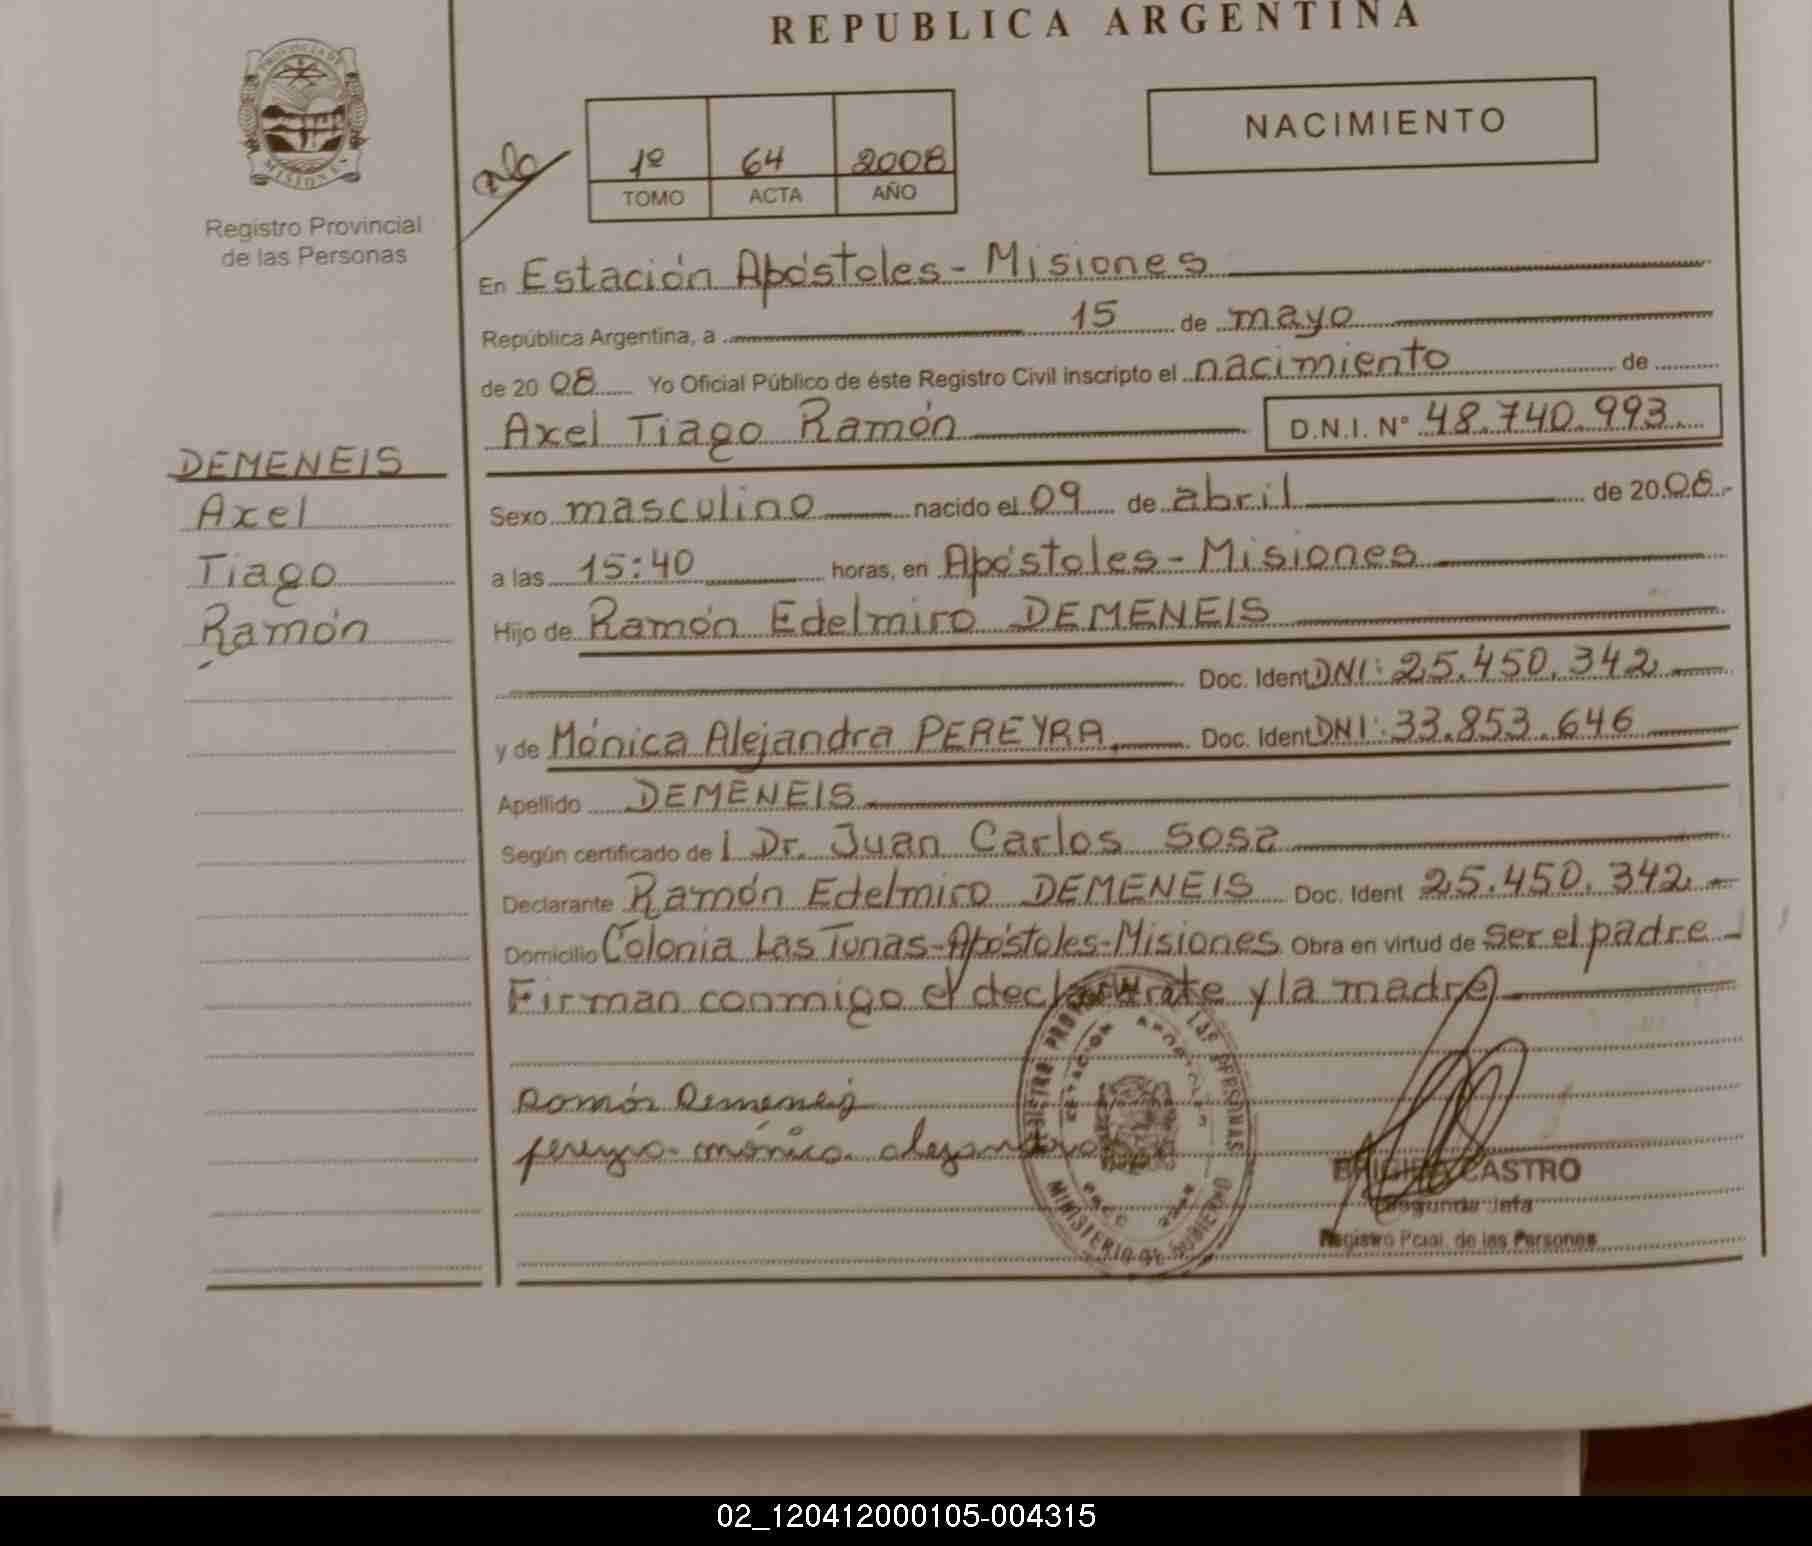 REPUBLICA ARGENTINA
PROVINCIA DE
MISIONES
Registro Provincial
de las Personas
1º 64 2008
TOMO ACTA AÑO
NACIMIENTO
En Estación Apóstoles - Misiones
República Argentina, a 15 de mayo
de 20 08 Yo Oficial Público de éste Registro Civil inscripto el nacimiento de
Axel Tiago Ramón D.N.I. Nº 48.740.993
DEMENEIS
Axel
Tiago
Ramón
Sexo masculino nacido el 09 de abril de 20 08.-
a las 15:40 horas, en Apóstoles - Misiones
Hijo de Ramón Edelmiro DEMENEIS
Doc. Ident DNI: 25.450.342
y de Mónica Alejandra PEREYRA Doc. Ident DNI: 33.853.646
Apellido DEMENEIS
Según certificado de l Dr. Juan Carlos Sosa
Declarante Ramón Edelmiro DEMENEIS Doc. Ident 25.450.342
Domicilio Colonia Las Tunas-Apóstoles-Misiones Obra en virtud de ser el padre
Firman conmigo el declarante y la madre
Ramón Demeneis
pereyra mónica alejandra
MINISTERIO DE GOBIERNO
CASTRO
Segunda Jefa
Registro Pcial. de las Personas
02_120412000105-004315